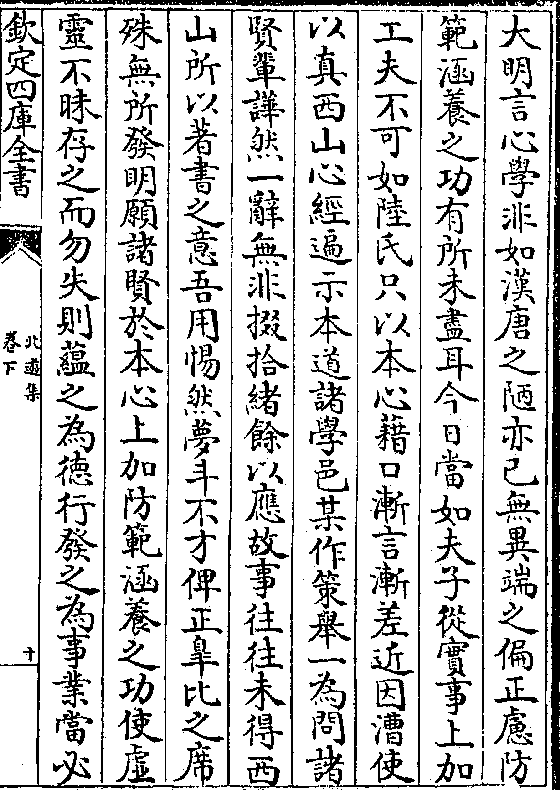 大明言心學非如漢唐之陋亦已無異端之偏正慮防
範涵養之功有所未盡耳今日當如夫子從實事上加
工夫不可如陸氏只以本心藉口漸言漸差近因漕使
以真西山心經遍示本道諸學邑某作策舉一為問諸
賢輩譁然一辭無非掇拾緒餘以應故事往往未得西
山所以著書之意吾用惕然夢斗不才俾正臯比之席
殊無所發明願諸賢於本心上加防範涵養之功使虛
靈不昧存之而勿失則蘊之為德行發之為事業當必
欽定四庫全書
北遊集
卷下
十